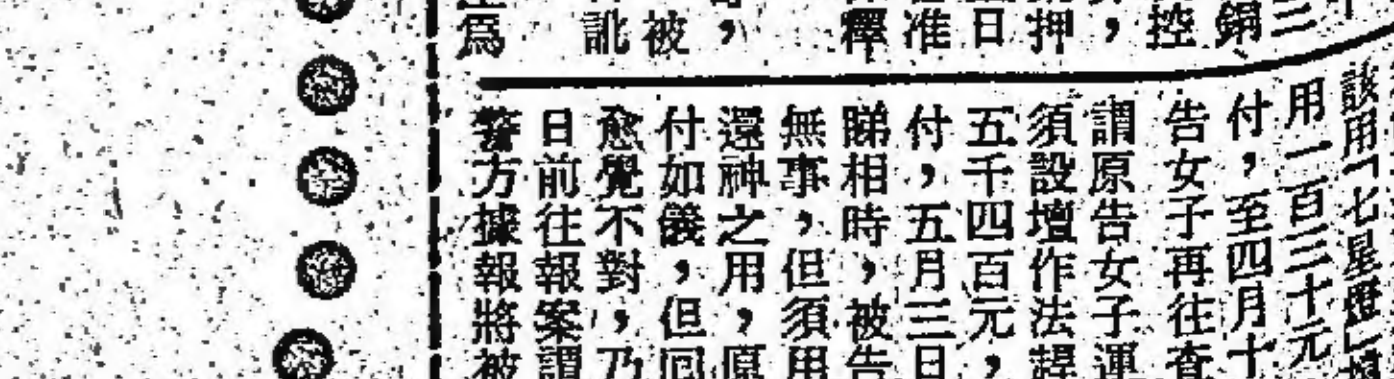 三
控
，
押
日
准
釋
，
被
訛
爲
該用「七星燈」
用二百三十元
付，至四月十
告女子再往查
謂原告女子運
須設壇作法趕
五千四百元，
付，五月三日
睇相時，被告
無事，但須用
還神之用，原
付如儀，但回
愈覺不對，乃
日前往報案謂
警方據報將被